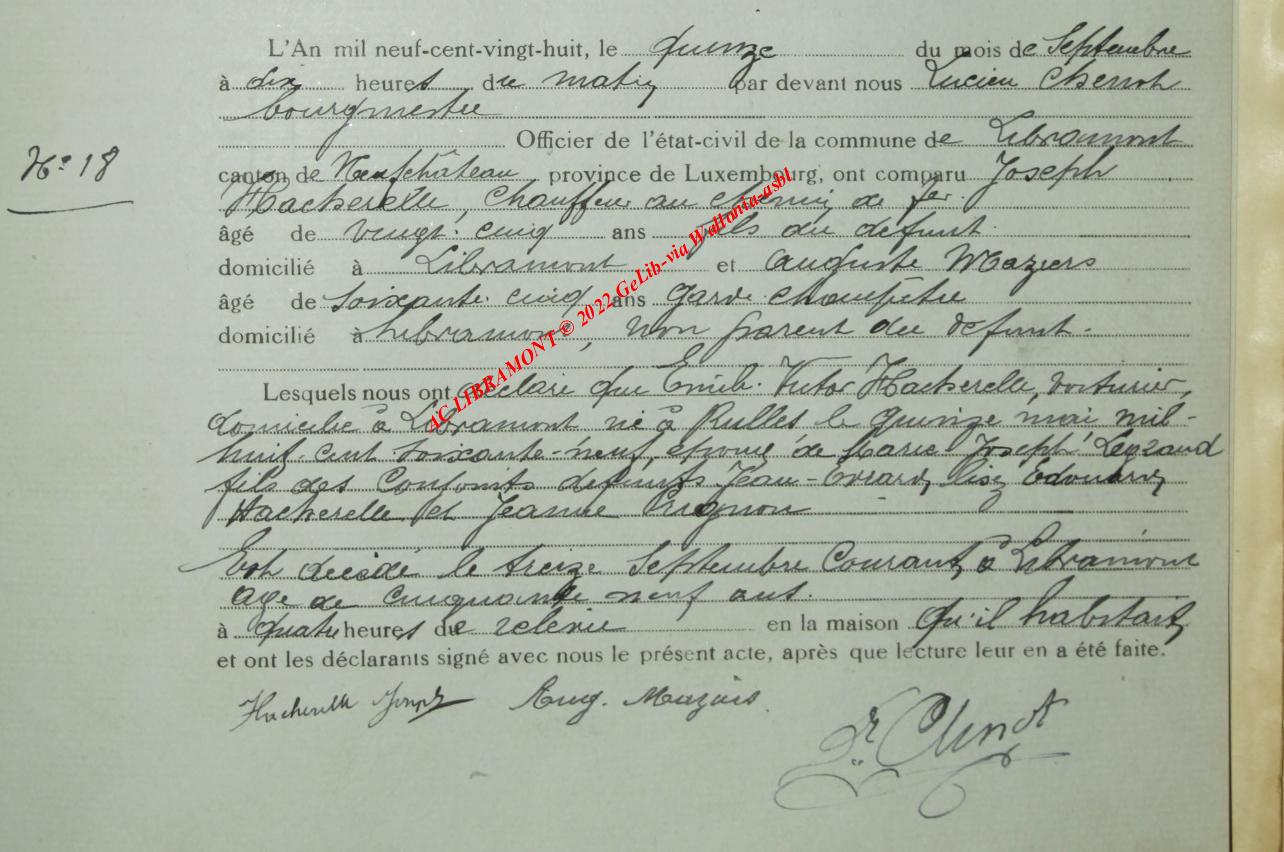 L'An mil neuf-cent-vingt-huit, le quinze du mois de Septembre
à dix heures du matin par devant nous Lucien Chenot
bourgmestre
Officier de l'état-civil de la commune de Libramont
N° 18
canton de Neufchâteau province de Luxembourg, ont comparu Joseph
Hackerelle, chauffeur au chemin de fer.
âgé de vingt-cinq ans fils du défunt.
domicilié à Libramont et Auguste Maziers
âgé de soixante-cinq ans garde champêtre
domicilié à Libramont, non parent du défunt.
Lesquels nous ont déclaré que Emile Victor Hackerelle, voiturier,
domicilié à Libramont né à Rulles le quinze mai mil-
huit-cent soixante-neuf, époux de Marie Joseph Legrand
fils des conjoints défunts Jean-Evrard, lisez Edouard,
Hackerelle et Jeanne Prignon
Est décédé le treize Septembre courant, à Libramont
âgé de cinquante neuf ans.
à quatre heures de relevée en la maison qu'il habitait,
et ont les déclarants signé avec nous le présent acte, après que lecture leur en a été faite.
Hackerelle Joseph Aug. Maziers
Dr Chenot
AC LIBRAMONT © 2022 GeLib-via Wallonia-asbl